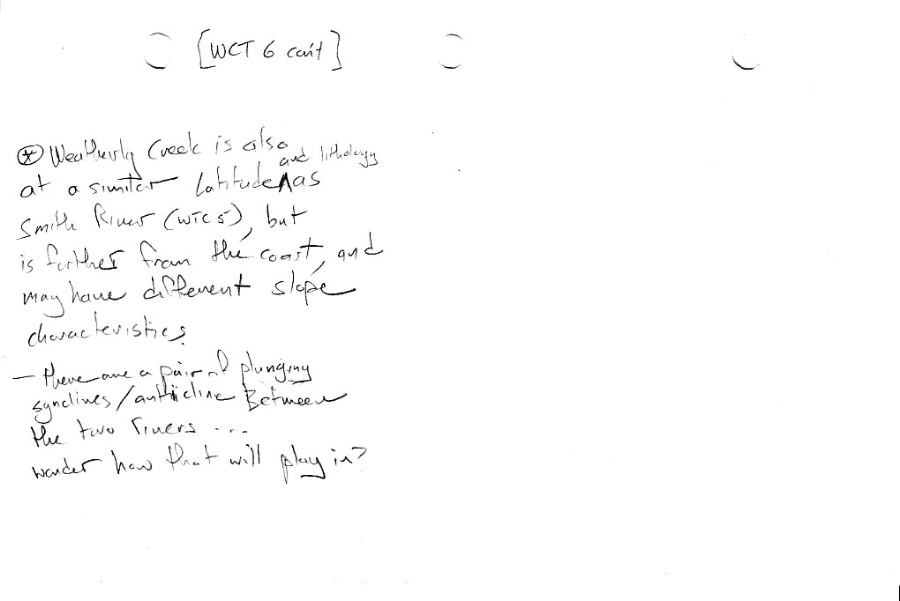 [WCT 6 con't]
⊛ Weatherly Creek is also
at a similar latitude ^and lithology as
Smith River (WTC 5), but
is further from the coast, and
may have different slope
characteristics.
- there are a pair of plunging
synclines/anticline Between
the two rivers ...
wonder how that will play in?